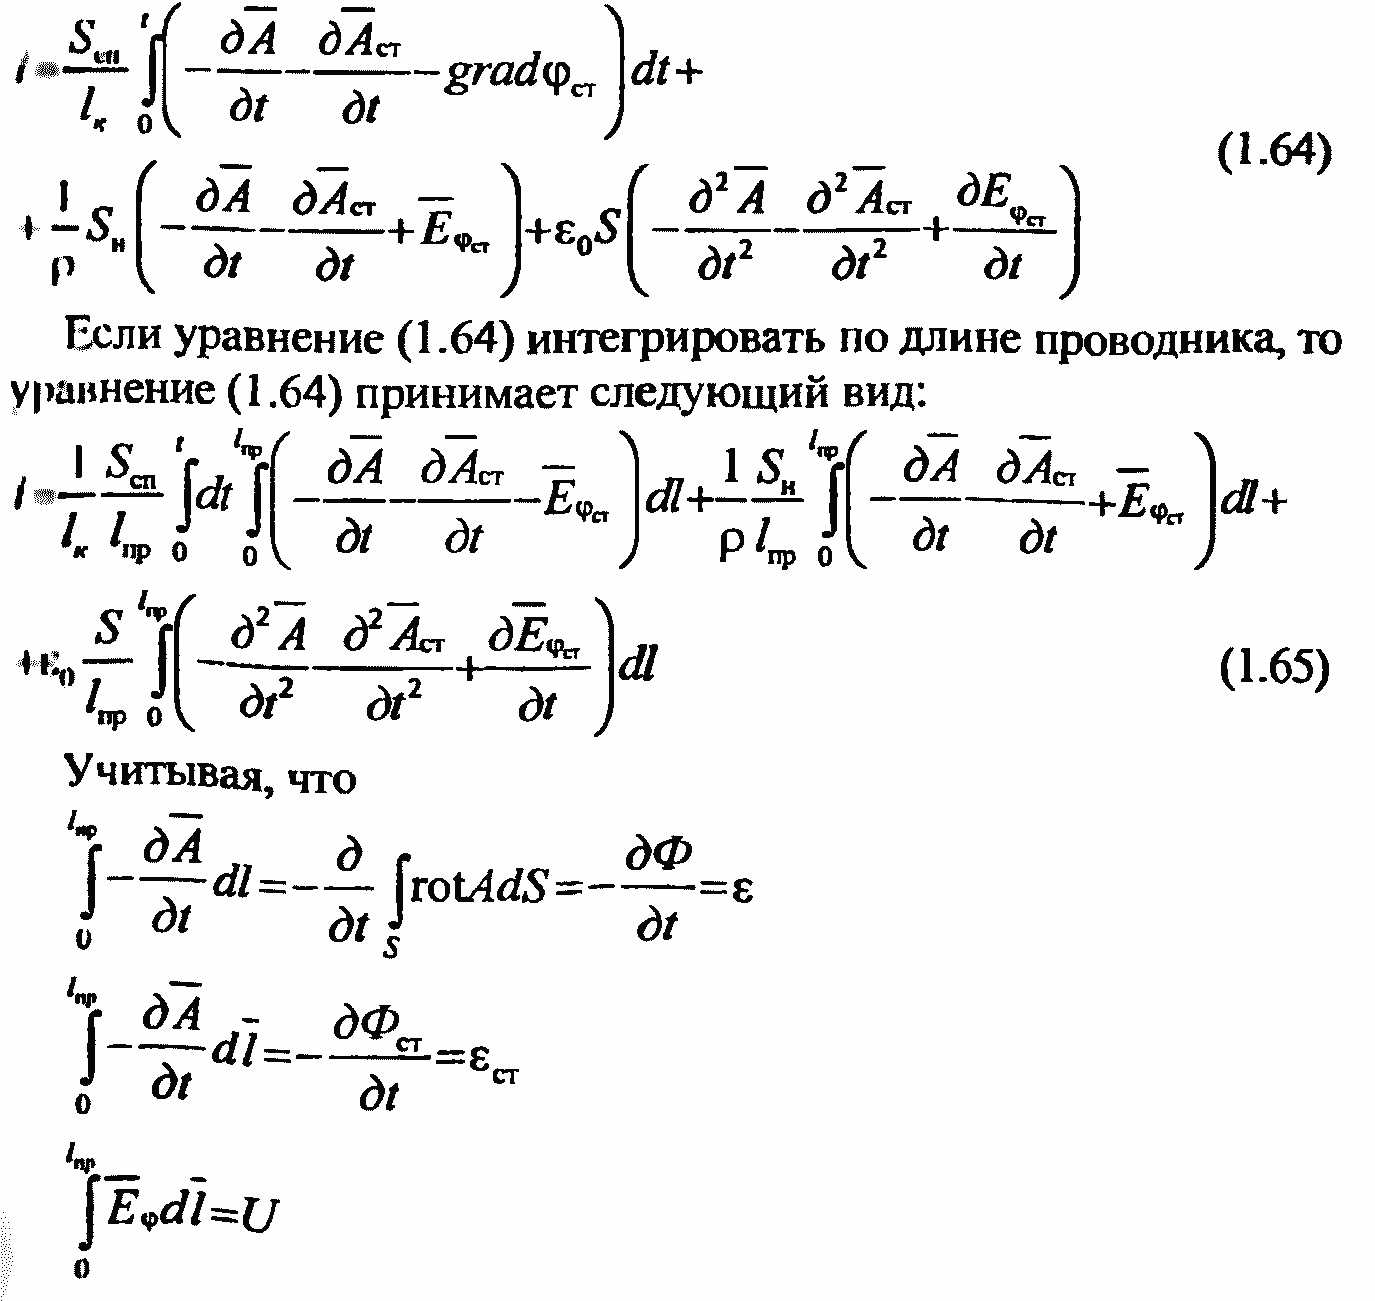 I = \frac{S_{сп}}{l_к} \int_0^t \left( -\frac{\partial \overline{A}}{\partial t} - \frac{\partial \overline{A}_{ст}}{\partial t} - grad φ_{ст} \right) dt +
(1.64)
+ \frac{1}{ρ} S_н \left( -\frac{\partial \overline{A}}{\partial t} - \frac{\partial \overline{A}_{ст}}{\partial t} + \overline{E}_{φ_{ст}} \right) + ε_0 S \left( -\frac{\partial^2 \overline{A}}{\partial t^2} - \frac{\partial^2 \overline{A}_{ст}}{\partial t^2} + \frac{\partial E_{φ_{ст}}}{\partial t} \right)
Если уравнение (1.64) интегрировать по длине проводника, то
уравнение (1.64) принимает следующий вид:
I = \frac{1}{l_к} \frac{S_{сп}}{l_{пр}} \int_0^t dt \int_0^{l_{пр}} \left( -\frac{\partial \overline{A}}{\partial t} - \frac{\partial \overline{A}_{ст}}{\partial t} - \overline{E}_{φ_{ст}} \right) dl + \frac{1}{ρ} \frac{S_н}{l_{пр}} \int_0^{l_{пр}} \left( -\frac{\partial \overline{A}}{\partial t} - \frac{\partial \overline{A}_{ст}}{\partial t} + \overline{E}_{φ_{ст}} \right) dl +
+ ε_0 \frac{S}{l_{пр}} \int_0^{l_{пр}} \left( -\frac{\partial^2 \overline{A}}{\partial t^2} - \frac{\partial^2 \overline{A}_{ст}}{\partial t^2} + \frac{\partial \overline{E}_{φ_{ст}}}{\partial t} \right) dl (1.65)
Учитывая, что
\int_0^{l_{пр}} -\frac{\partial \overline{A}}{\partial t} dl = -\frac{\partial}{\partial t} \int_S rotAdS = -\frac{\partial Φ}{\partial t} = ε
\int_0^{l_{пр}} -\frac{\partial \overline{A}}{\partial t} d\overline{l} = -\frac{\partial Φ_{ст}}{\partial t} = ε_{ст}
\int_0^{l_{пр}} \overline{E}_φ d\overline{l} = U